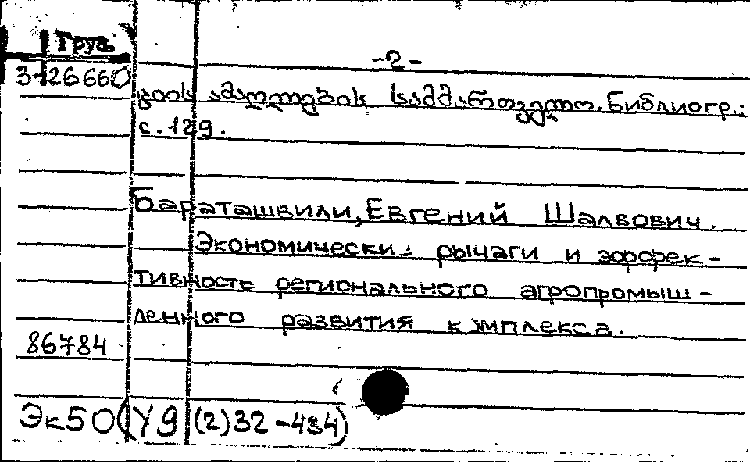 Груз.
-2-
3-26660
ვიის ამაღლების სამმართველო. Библиогр.:
с. 129.
Бараташвили, Евгений Шалвович.
Экономически: рычаги и эффек-
тивность регионального агропромыш-
ленного развития комплекса.
86784
Эк50(У9(2)32-4з4)